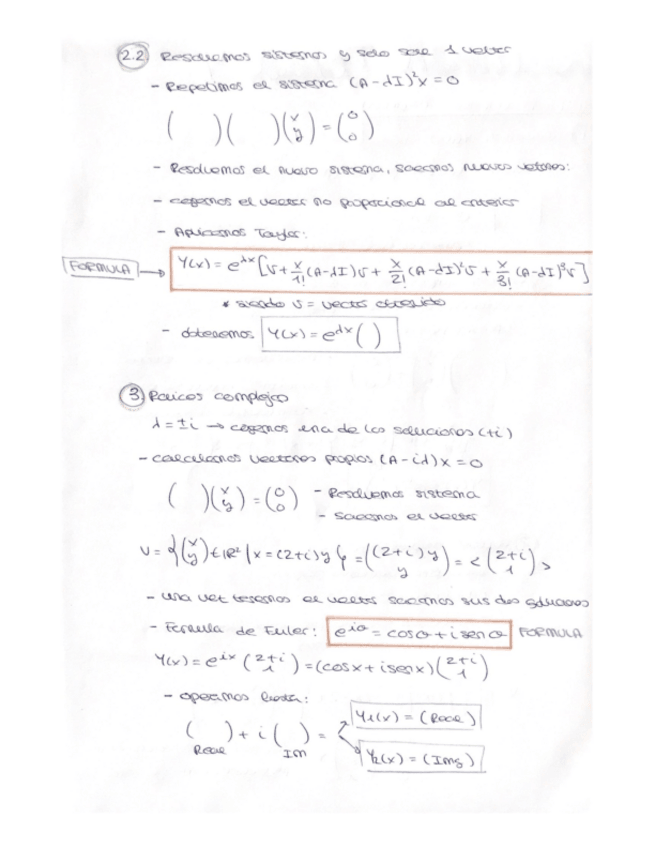 2.2. Resolvemos sistemas y solo sale 1 vector
- Repetimos el sistema (A-λI)²x = 0
(   )(   )(x y) = (0 0)
- Resolvemos el nuevo sistema, sacamos nuevos vectores:
- cogemos el vector no proporcional al anterior
- Aplicamos Taylor:
FORMULA → Y(x) = e^λx [v + x/1! (A-λI)v + x/2! (A-λI)²v + x/3! (A-λI)³v]
* siendo v = vector obtenido
- obtenemos Y(x) = e^λx (  )
3. Raices complejas
λ = ±i → cogemos una de las soluciones (+i)
- calculamos vectores propios (A-iλ)x = 0
(   )(x y) = (0 0) - Resolvemos sistema
- Sacamos el vector
V = {(x y) ∈ ℝ² | x = (2+i)y} = ((2+i)y y) = <(2+i 1)>
- una vez tenemos el vector sacamos sus dos soluciones
- Formula de Euler: e^iθ = cosθ + i senθ FORMULA
Y(x) = e^ix (2+i 1) = (cosx + i senx)(2+i 1)
- operamos hasta:
Y1(x) = (Real)
(   ) + i (   ) =
Real IM
Y2(x) = (Img)